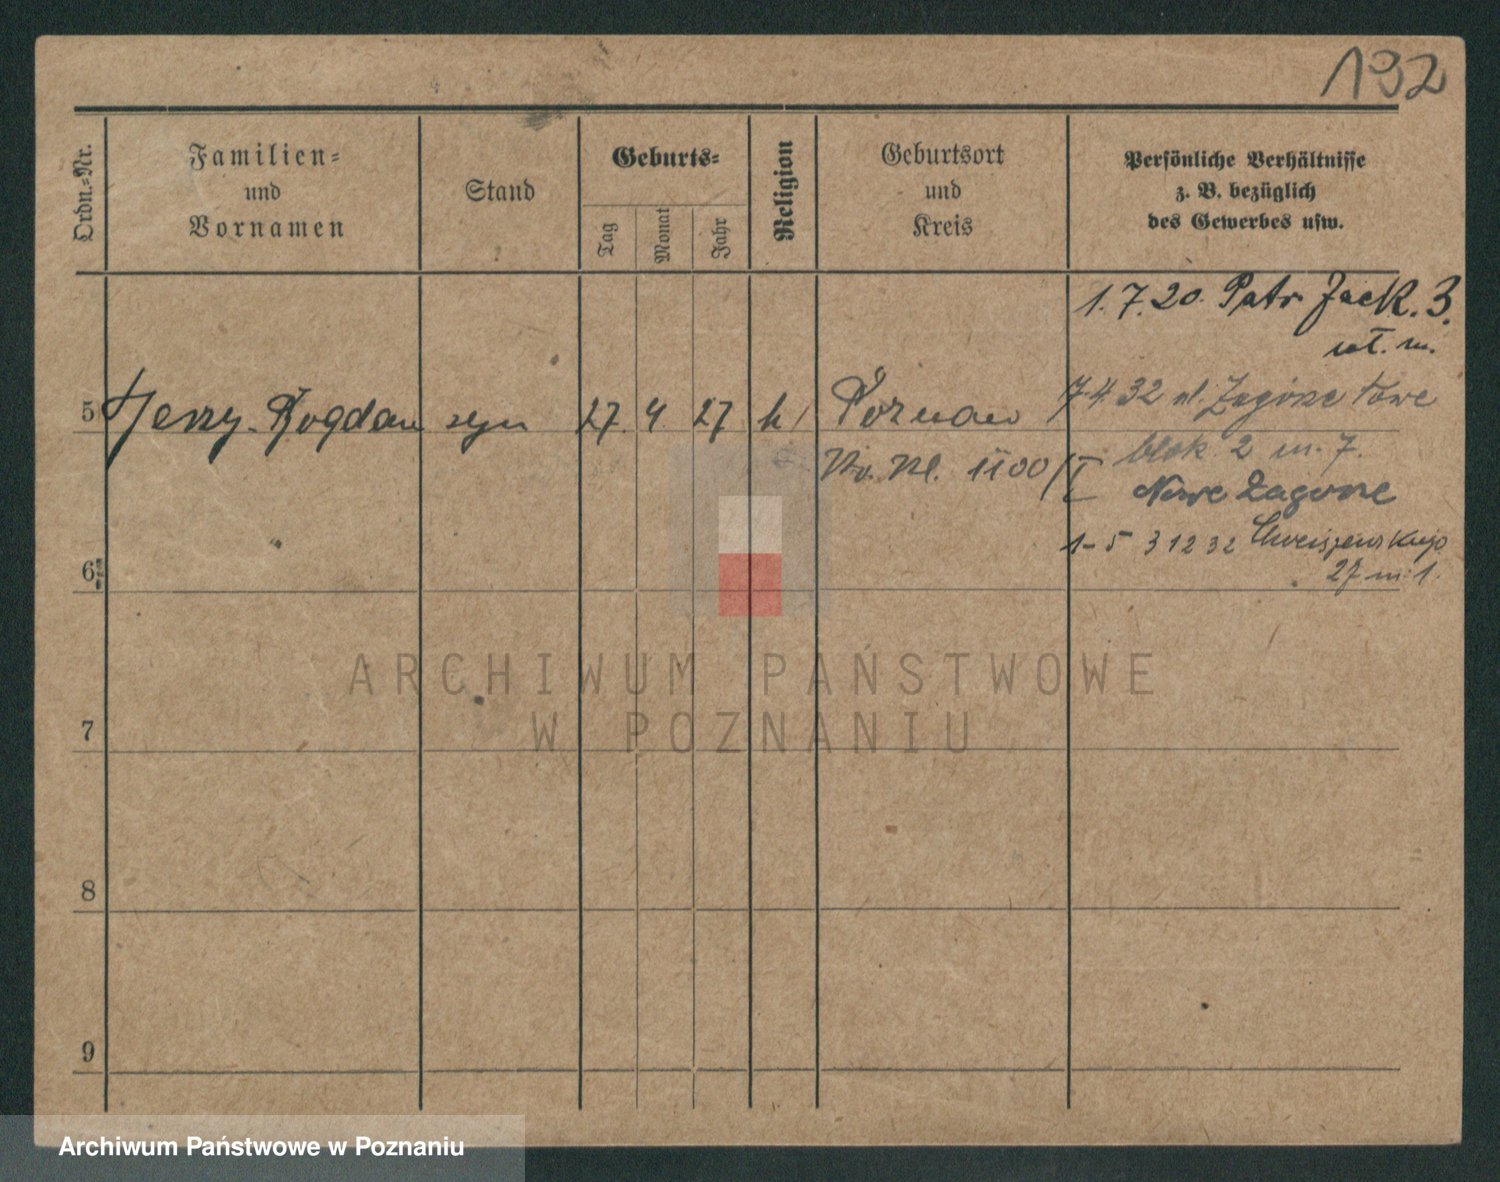 192
Ordn.-Nr.
Familien-
und
Vornamen
Stand
Geburts-
Tag
Monat
Jahr
Religion
Geburtsort
und
Kreis
Persönliche Verhältnisse
z. B. bezüglich
des Gewerbes usw.
1.7.20. Patr. Jack. 3.
5 Jerzy-Bogdan syn 27. 4. 27 k Poznań
7.4.32 ul. Zagórze
blok 2 m. 7.
1100/
Nowe Zagórze
1-5 3 12 32
27 m. 1.
6
7
8
9
ARCHIWUM PAŃSTWOWE
W POZNANIU
Archiwum Państwowe w Poznaniu